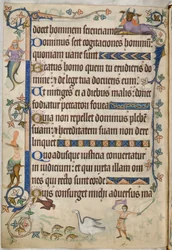 docet hominem scienciam
Dominus scit cogitaciones hominum:
quoniam uane sunt
Beatus homo quem tu erudieris do
mine: & de lege tua docueris eum
Ut mitiges ei a diebus malis: donec
fodiatur peccatori fouea
Quia non repellet dominus plebem
suam: & hereditatem suam non dere
linquet
Quoadusque iusticia conuertatur
in iudicium: et qui iuxta illam om
nes qui recto sunt corde
Quis consurget michi aduersus ma